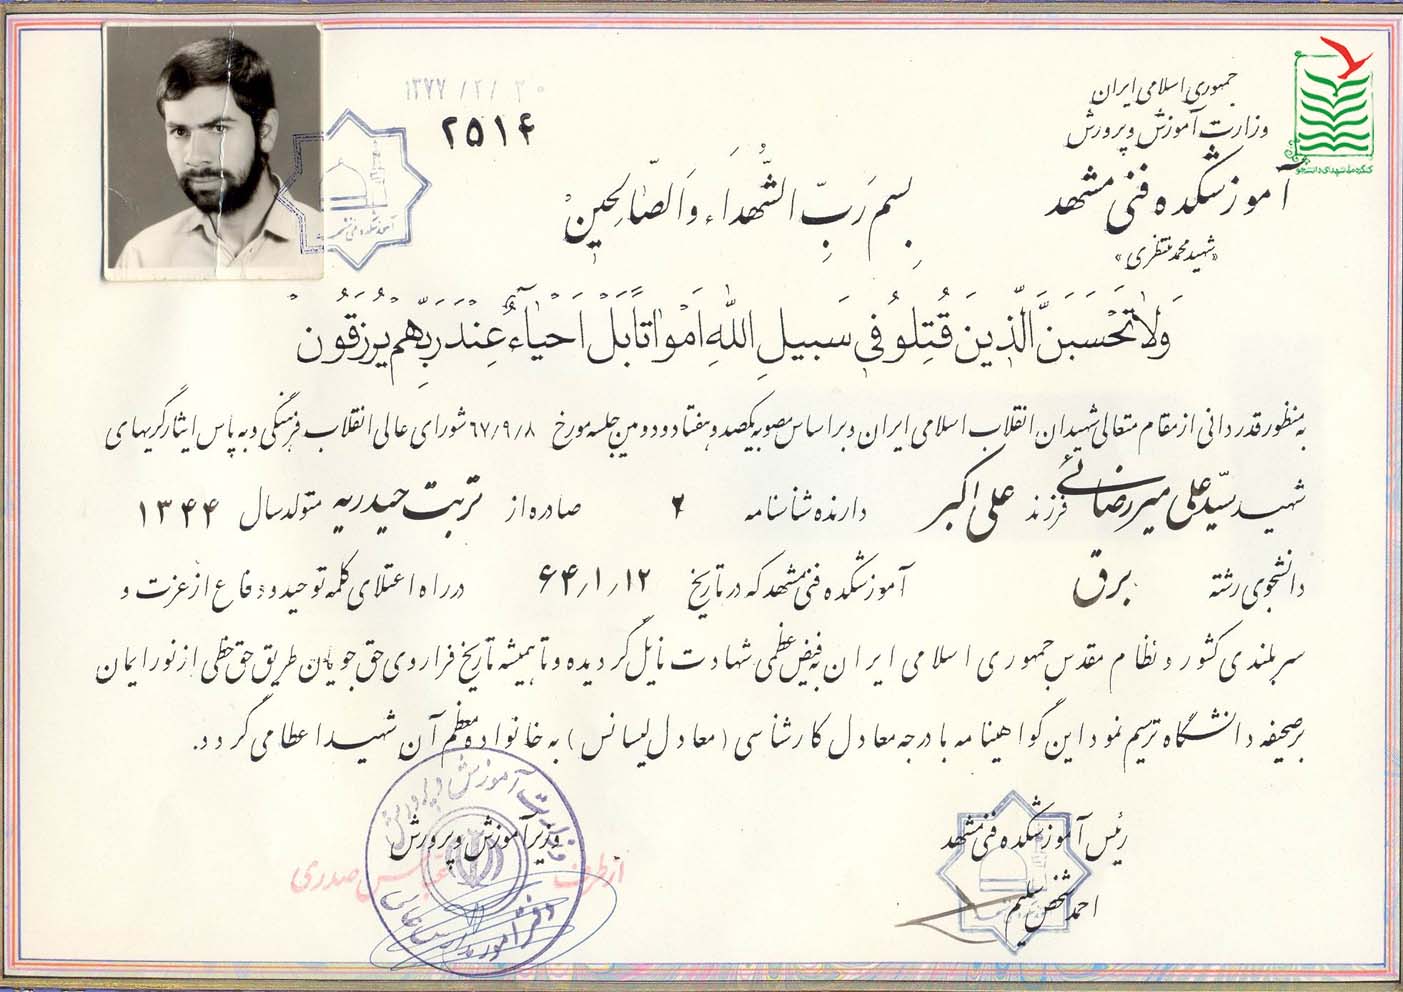 ۱۳۷۷/۲/۲۰
۲۵۱۴
جمهوری اسلامی ایران
وزارت آموزش و پرورش
آموزشکده فنی مشهد
«شهید محمد منتظری»
کنگره ملی شهدای دانشجو
آموزشکده فنی مشهد
بِسم رَبِّ الشُّهَداء وَالصّالِحینْ
وَلا تَحْسَبَنَّ الَّذینَ قُتِلوُ فی سَبیلِ اللهِ اَمْواتاً بَلْ اَحْیاءٌ عِنْدَ رَبِّهِم یُرزَقُون
به منظور قدردانی از مقام متعالی شهیدان انقلاب اسلامی ایران و بر اساس مصوبه یکصد و هفتاد و دومین جلسه مورخ ۶۷/۹/۸ شورای عالی انقلاب فرهنگی و به پاس ایثارگریهای
شهید سیّد علی میررضائی فرزند علی اکبر دارنده شناسنامه ۲ صادره از تربت حیدریه متولد سال ۱۳۴۴
دانشجوی رشته برق آموزشکده فنی مشهد که در تاریخ ۶۴/۱/۱۲ در راه اعتلای کلمه توحید و دفاع از عزت و
سربلندی کشور و نظام مقدس جمهوری اسلامی ایران به فیض عظمی شهادت نایل گردیده و تا همیشه تاریخ فراروی حق جویان طریق حق خطی از نور ایمان
بر صحیفه دانشگاه ترسیم نمود این گواهینامه با درجه معادل کارشناسی (معادل لیسانس) به خانواده معظم آن شهید اعطا می گردد.
رئیس آموزشکده فنی مشهد
احمد شخص سلیم
وزیر آموزش و پرورش
از طرف عباس صدری
وزارت آموزش و پرورش
دفتر امور